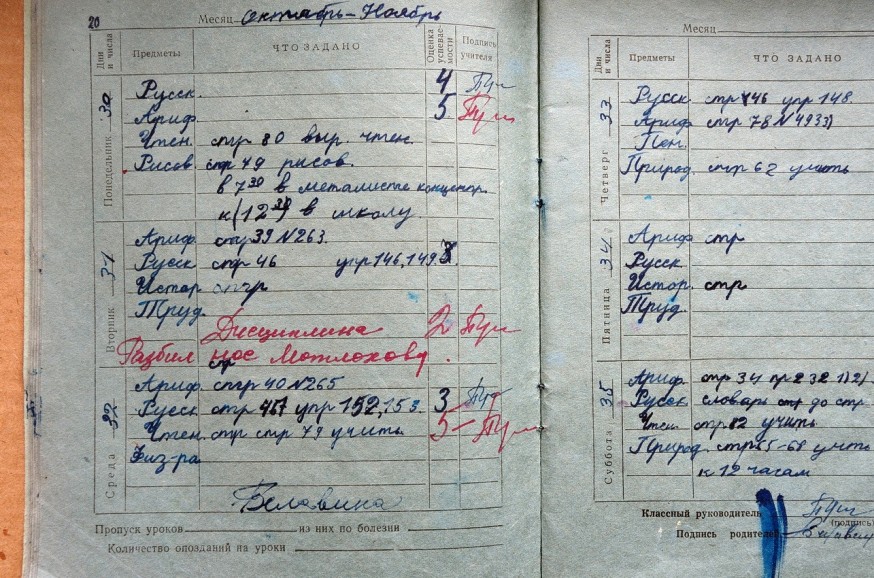 20
Месяц Сентябрь-Ноябрь
Дни и числа Предметы ЧТО ЗАДАНО Оценка успеваемости Подпись учителя
Понедельник 30
Русск. 4
Ариф. 5
Чтен. стр 80 выр. чтен.
Рисов стр 49 рисов.
в 7 30 в металисте концерт.
к (12 30) в школу.
Вторник 31
Ариф. стр 39 N 263.
Русск стр 46 упр 146, 149. 3
Истор стр
Труд.
Дисциплина 2
Разбил нос Мотлохову.
Среда 32
стр
Ариф. стр 40 N 265
Русск стр 47 упр 152, 153. 3
Чтен. стр стр 79 учить. 5
Физ-ра
Белавина
Пропуск уроков из них по болезни
Количество опозданий на уроки
Месяц
Дни и числа Предметы ЧТО ЗАДАНО
Четверг 33
Русск стр 46 упр 148.
Ариф стр 78 N 493
Пен.
Природ. стр 62 учить
Пятница 34
Ариф стр
Русск
Истор. стр
Труд.
Суббота 35
Ариф. стр 34 пр 232 1)2)
Русск словарь стр до стр
Чтен. стр. 82 учить
Природ. стр 65-68 учить
к 12 часам
Классный руководитель
(подпись)
Подпись родителей